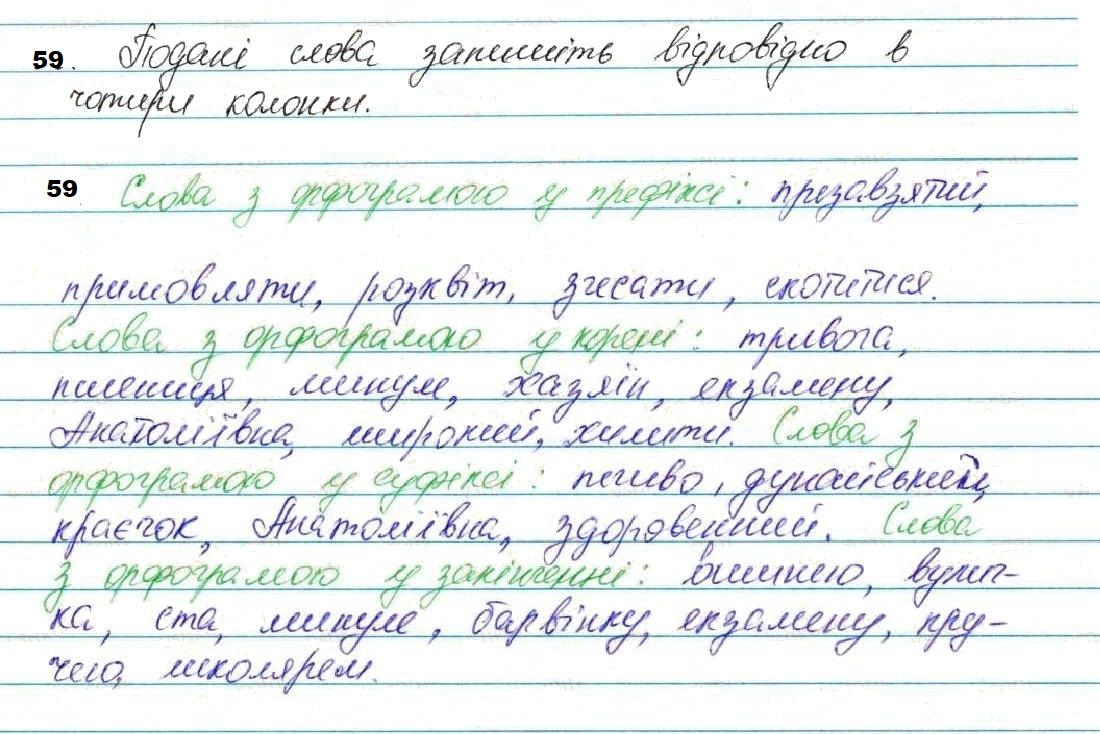 59. Подані слова запишіть відповідно в
чотири колонки.
59 Слова з орфограмою у префіксі: презавзятий,
примовляти, розквіт, зчесати, скотитися.
Слова з орфограмою у корені: тривога,
пшениця, минуле, хазяїн, екзамену,
Анатоліївна, широкий, хилити. Слова з
орфограмою у суфіксі: печиво, дунайський,
краєчок, Анатоліївна, здоровенний. Слова
з орфограмою у закінченні: вишнею,
ка, ста, минуле, барвінку, екзамену,
школярем.